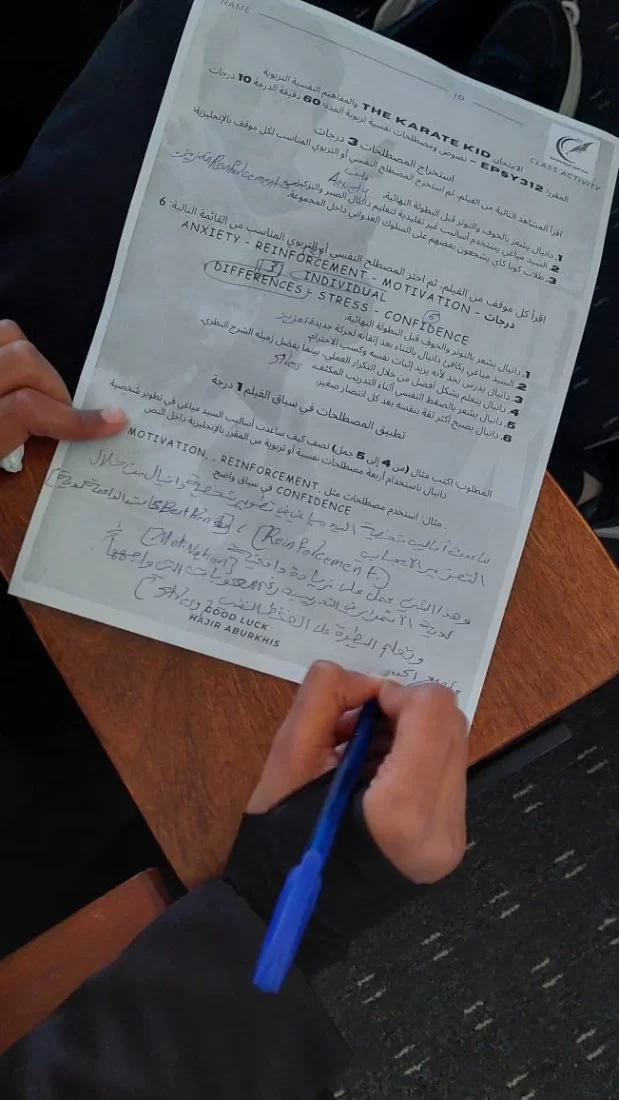 NAME
ID
CLASS ACTIVITY
الامتحان THE KARATE KID والمفاهيم النفسية التربوية
المقرر: EPSY312 – نصوص ومصطلحات نفسية تربوية المدة: 60 دقيقة الدرجة 10 درجات
استخراج المصطلحات 3 درجات
اقرأ المشاهد التالية من الفيلم، ثم استخرج المصطلح النفسي أو التربوي المناسب لكل موقف بالإنجليزية:
1. دانيال يشعر بالخوف والتوتر قبل البطولة النهائية. Anxiety
2. السيد مياغي يستخدم أساليب غير تقليدية لتعليم دانيال الصبر والتركيز. Reinforcement التعزيز
3. طلاب كوبرا كاي يشجعون بعضهم على السلوك العدواني داخل المجموعة.
اقرأ كل موقف من الفيلم، ثم اختر المصطلح النفسي أو التربوي المناسب من القائمة التالية: 6
درجات - ANXIETY - REINFORCEMENT - MOTIVATION
3 INDIVIDUAL
DIFFERENCES - STRESS - CONFIDENCE 6
1. دانيال يشعر بالتوتر والخوف قبل البطولة النهائية.
2. السيد مياغي يكافئ دانيال بالثناء بعد إتقانه لحركة جديدة. تعزيز
3. دانيال يتدرب بجد لأنه يريد إثبات نفسه وكسب الاحترام.
4. دانيال يتعلم بشكل أفضل من خلال التكرار العملي، بينما يفضل زميله الشرح النظري.
5. دانيال يشعر بالضغط النفسي أثناء التدريب المكثف. stres
6. دانيال يصبح أكثر ثقة بنفسه بعد كل انتصار صغير.
تطبيق المصطلحات في سياق الفيلم 1 درجة
المطلوب: اكتب مثال (من 4 إلى 5 جمل) تصف كيف ساعدت أساليب السيد مياغي في تطوير شخصية
دانيال باستخدام أربعة مصطلحات نفسية أو تربوية من المقرر بالإنجليزية داخل النص
. مثال: استخدم مصطلحات مثل MOTIVATION... REINFORCEMENT,
CONFIDENCE في سياق واضح
ساعدت أساليب السيد مياغي في تطوير شخصية دانيال من خلال
التعزيز (Reinfolcement)
وهذا الشي عمل على زيادة دافعية (Motivation)
ف التدريب رغم الصعوبات التي واجهها
وتعلم السيطرة على الضغط النفسي (Stres)
واصبح اكثر
GOOD LUCK
HAJIR ABURKHIS